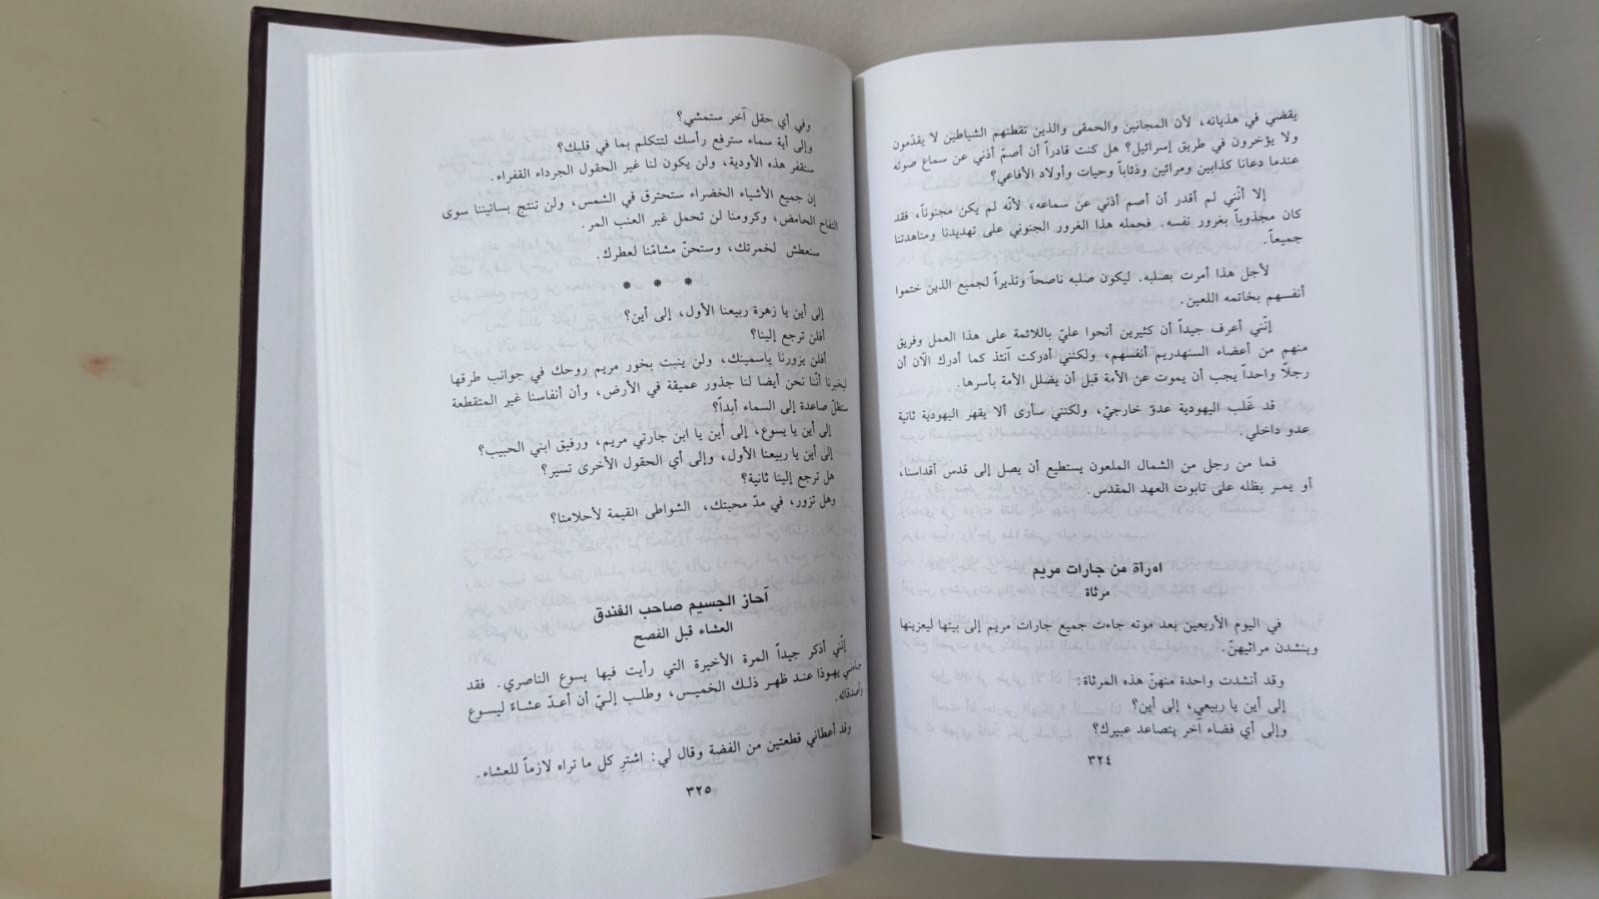 يقضي في هذيانه، لأن المجانين والحمقى والذين تقطنهم الشياطين لا يقدّمون
ولا يؤخرون في طريق إسرائيل؟ هل كنت قادراً أن أصمّ أذني عن سماع صوته
عندما دعانا كذابين ومرائين وذئاباً وحيات وأولاد الأفاعي؟
إلا أنّني لم أقدر أن أصم أذني عن سماعه، لأنّه لم يكن مجنوناً، فقد
كان مجذوباً بغرور نفسه. فحمله هذا الغرور الجنوني على تهديدنا ومناهدتنا
جميعاً.
لأجل هذا أمرت بصلبه. ليكون صلبه ناصحاً ونذيراً لجميع الذين ختموا
أنفسهم بخاتمه اللعين.
إنّني أعرف جيداً أن كثيرين أنحوا عليّ باللائمة على هذا العمل وفريق
منهم من أعضاء السنهدريم أنفسهم، ولكنني أدركت آنئذ كما أدرك الآن أن
رجلاً واحداً يجب أن يموت عن الأمة قبل أن يضلل الأمة بأسرها.
قد غَلب اليهودية عدوّ خارجيّ، ولكنني سأرى ألا يقهر اليهودية ثانية
عدو داخلي.
فما من رجل من الشمال الملعون يستطيع أن يصل إلى قدس أقداسنا،
أو يمر بظله على تابوت العهد المقدس.
امرأة من جارات مريم
مرثاة
في اليوم الأربعين بعد موته جاءت جميع جارات مريم إلى بيتها ليعزينها
وينشدن مراثيهنّ.
وقد أنشدت واحدة منهنّ هذه المرثاة:
إلى أين يا ربيعي، إلى أين؟
وإلى أي فضاء آخر يتصاعد عبيرك؟
٣٢٤
وفي أي حقل آخر ستمشي؟
وإلى أية سماء سترفع رأسك لتتكلم بما في قلبك؟
ستقفر هذه الأودية، ولن يكون لنا غير الحقول الجرداء القفراء.
إن جميع الأشياء الخضراء ستحترق في الشمس، ولن تنتج بساتيننا سوى
التفاح الحامض، وكرومنا لن تحمل غير العنب المر.
سنعطش لخمرتك، وستحنّ مشامّنا لعطرك.
* * *
إلى أين يا زهرة ربيعنا الأول، إلى أين؟
أفلن ترجع إلينا؟
أفلن يزورنا ياسمينك، ولن ينبت بخور مريم روحك في جوانب طرقها
ليخبرنا أنّنا نحن أيضا لنا جذور عميقة في الأرض، وأن أنفاسنا غير المتقطعة
ستظلّ صاعدة إلى السماء أبداً؟
إلى أين يا يسوع، إلى أين يا ابن جارتي مريم، ورفيق ابني الحبيب؟
إلى أين يا ربيعنا الأول، وإلى أي الحقول الأخرى تسير؟
هل ترجع إلينا ثانية؟
وهل تزور، في مدّ محبتك، الشواطى القيمة لأحلامنا؟
آحاز الجسيم صاحب الفندق
العشاء قبل الفصح
إنّني أذكر جيداً المرة الأخيرة التي رأيت فيها يسوع الناصري. فقد
جاءني يهوذا عند ظهر ذلك الخميس، وطلب إليّ أن أعدّ عشاءً ليسوع
وأصدقائه.
وقد أعطاني قطعتين من الفضة وقال لي: اشترِ كل ما تراه لازماً للعشاء.
٣٢٥